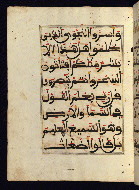 وأسروا النجوى الذين
ظلموا هل هذا إلا
بشر مثلكم أفتأتون
السحر وأنتم تبصرو
ن قل ربي يعلم القول
في السماء والأرض
وهو السميع العليم
بل قالوا أضغاث